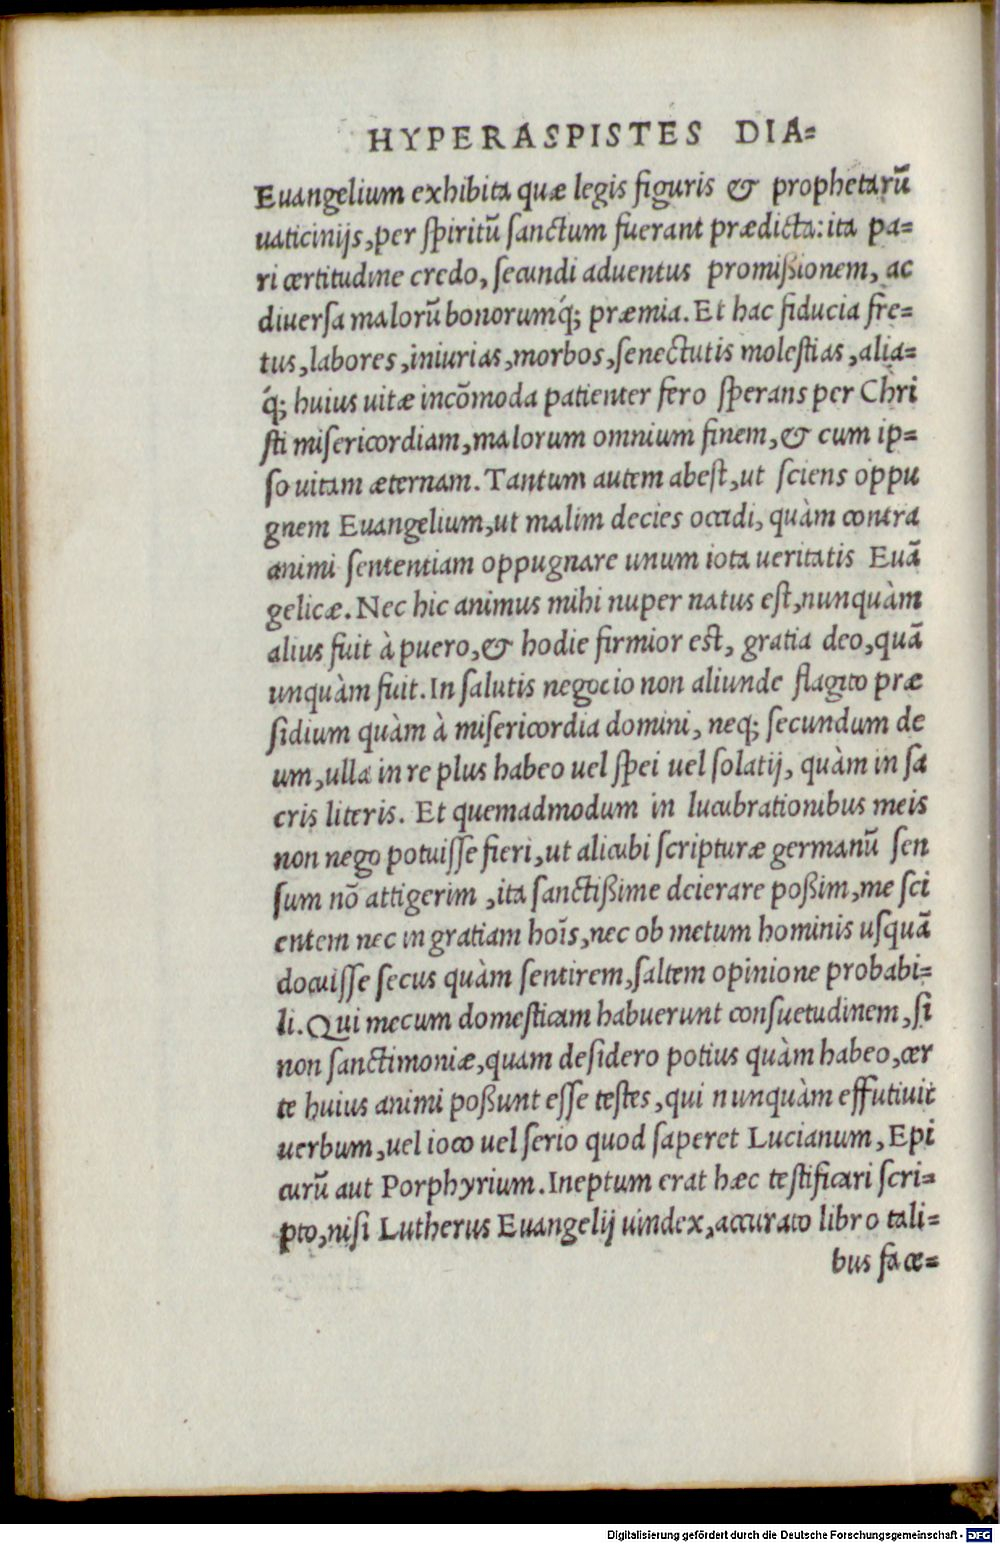 HYPERASPISTES DIA=
Euangelium exhibita quæ legis figuris & prophetarũ
uaticinijs, per ſpiritũ ſanctum fuerant prædicta: ita pa=
ri certitudine credo, ſecundi aduentus promißionem, ac
diuerſa malorũ bonorumq́; præmia. Et hac fiducia fre=
tus, labores, iniurias, morbos, ſenectutis moleſtias, alia=
q́; huius uitæ incõmoda patienter fero ſperans per Chri
ſti miſericordiam, malorum omnium finem, & cum ip=
ſo uitam æternam. Tantum autem abeſt, ut ſciens oppu
gnem Euangelium, ut malim decies occidi, quàm contra
animi ſententiam oppugnare unum iota ueritatis Euã
gelicæ. Nec hic animus mihi nuper natus eſt, nunquàm
alius fuit à puero, & hodie firmior est, gratia deo, quã
unquàm fuit. In ſalutis negocio non aliunde flagito præ
ſidium quàm à miſericordia domini, neq; ſecundum de
um, ulla in re plus habeo uel ſpei uel ſolatij, quàm in ſa
cris literis. Et quemadmodum in lucubrationibus meis
non nego potuiſſe fieri, ut alicubi ſcripturæ germanũ ſen
ſum nõ attigerim, ita ſanctißime deierare poßim, me ſci
entem nec in gratiam hoĩs, nec ob metum hominis uſquã
docuiſſe ſecus quàm ſentirem, ſaltem opinione probabi=
li. Qui mecum domeſticam habuerunt conſuetudinem, ſi
non ſanctimoniæ, quam deſidero potius quàm habeo, cer
te huius animi poßunt eſſe teſtes, qui nunquàm effutiuit
uerbum, uel ioco uel ſerio quod ſaperet Lucianum, Epi
curũ aut Porphyrium. Ineptum erat hæc teſtificari ſcri=
pto, niſi Lutherus Euangelij uindex, accurato libro tali=
bus face=
Digitalisierung gefördert durch die Deutsche Forschungsgemeinschaft - DFG